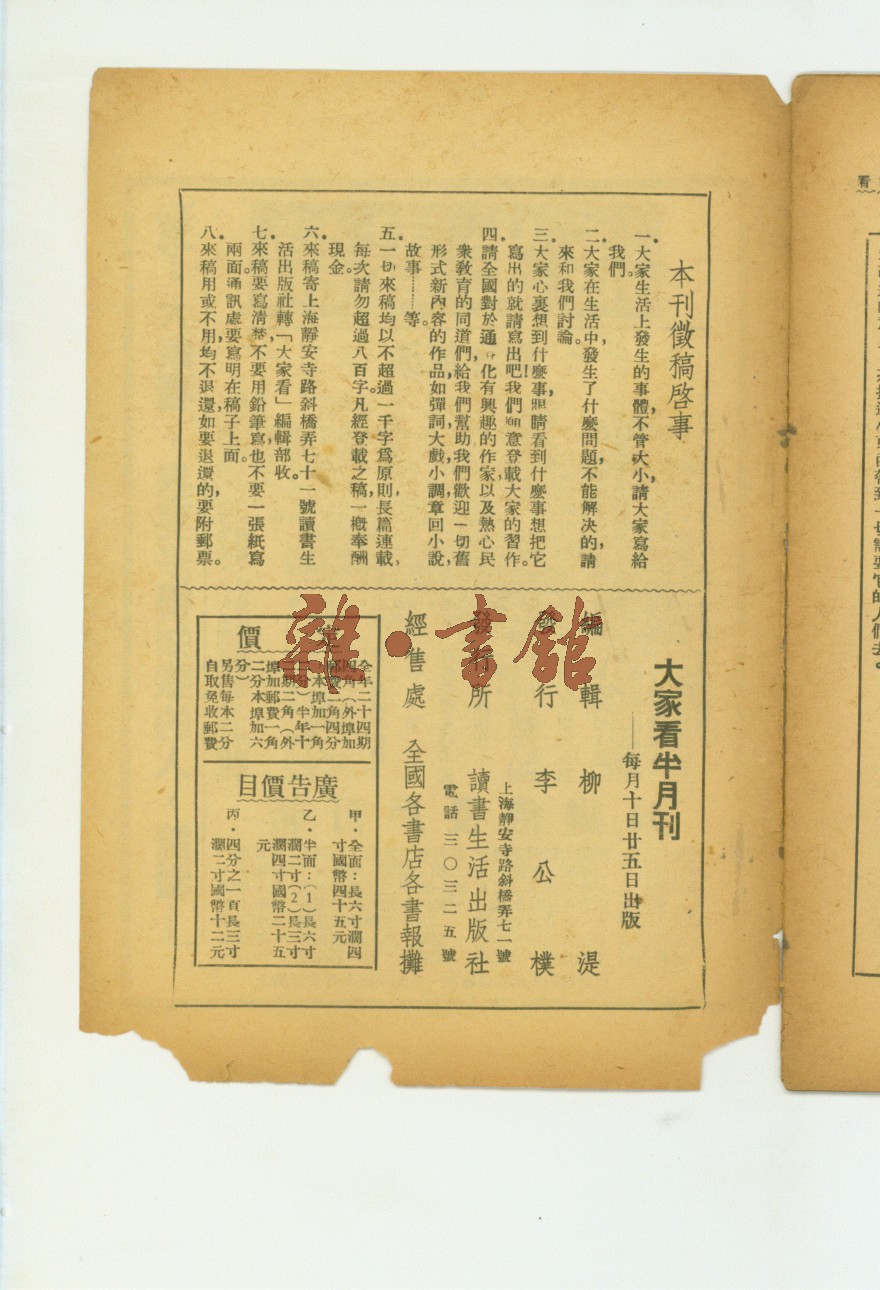 本刊徵稿啓事
一．大家生活上發生的事體，不管大小，請大家寫給
我們。
二．大家在生活中發生了什麼問題不能解决的，請
來和我們討論。
三．大家心裏想到什麼事，眼睛看到什麼事想把它
寫出的就請寫出吧！我們願意登載大家的習作。
四．請全國對於通俗化有興趣的作家，以及熱心民
衆敎育的同道們，給我們幫助我們歡迎一切舊
形式新內容的作品，如彈詞大戲小調章回小說，
故事……等。
五．一切來稿均以不超過一千字爲原則，長篇連載，
每次請勿超過八百字。凡經登載之稿，一槪奉酬
現金。
六．來稿寄上海靜安寺路斜橋弄七十一號讀書生
活出版社轉「大家看」編輯部收。
七．來稿要寫淸楚，不要用鉛筆寫，也不要一張紙寫
兩面。通訊處要寫明在稿子上面。
八．來稿用或不用，均不退還，如要退還的，要附郵票。
大家看半月刊
——每月十日廿五日出版
編輯 柳湜
發行 李公樸
上海靜安寺路斜橋弄七一號
發行所 讀書生活出版社
電話 三〇三二五號
經售處 全國各書店各書報攤
定價
全年二十四期
四角（外埠加
郵費二角四分
本埠加一角
二分）半年十
二期二角（外
埠加郵費一角
二分本埠加六
分）
另售每本二分
自取免收郵費
廣告價目
甲．全面：長六寸濶四
寸國幣四十五元
乙．半面：（1）長六寸
濶二寸（2）長三寸
濶四寸國幣二十五
元
丙．四分之一頁長三寸
濶二寸國幣十二元
雜·書館
看